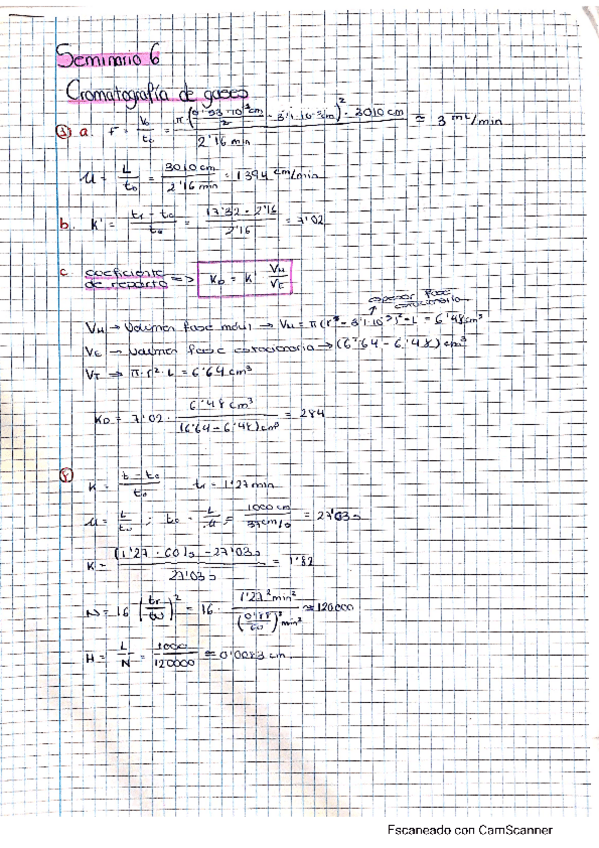 Seminario 6
Cromatografía de gases
① a. F = V₀/t₀ = π (0'53·10⁻¹cm/2 - 3'1·10⁻³cm)² · 3010 cm / 2'16 min ≈ 3 mL/min
μ = L/t₀ = 3010 cm / 2'16 min = 1394 cm/min
b. K' = tr - t₀ / t₀ = 17'32 - 2'16 / 2'16 = 7'02
c coeficiente de reparto => K_D = K' V_M/V_C
espesor fase estacionaria
V_M → Volumen fase móvil → V_M = π(r - 3'1·10⁻³)²·L = 6'48 cm³
V_C → Volumen fase estacionaria → (6'64 - 6'48) cm³
V_T → π·r²·L = 6'64 cm³
K_D = 7'02 · 6'48 cm³ / (6'64 - 6'48) cm³ = 284
K = t - t₀ / t₀ tr = 1'27 min
μ = L/t₀ ; t₀ = L/μ = 1000 cm / 37 cm/s = 27'03 s
K = (1'27 · 60) s - 27'03 s / 27'03 s = 1'82
N = 16 (tr/ω)² = 16 · 1'27² min² / (0'88/60)² min² ≈ 120000
H = L/N = 1000/120000 ≈ 0'0083 cm
Escaneado con CamScanner